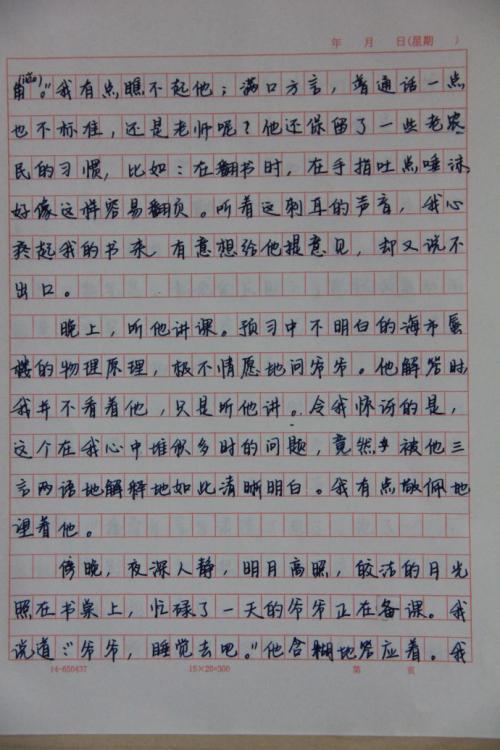 年 月 日(星期 )
角(lòu)。”我有点瞧不起他；满口方言，普通话一点
也不标准，还是老师呢？他还保留了一些老农
民的习惯，比如：在翻书时，在手指吐点唾沫
好像这样容易翻页。听着这刺耳的声音，我心
疼起我的书来，有意想给他提意见，却又说不
出口。
晚上，听他讲课。预习中不明白的海市蜃
楼的物理原理，极不情愿地问爷爷。他解答时
我并不看着他，只是听他讲。令我惊讶的是，
这个在我心中堆积多时的问题，竟然被他三
言两语地解释地如此清晰明白。我有点敬佩地
望着他。
傍晚，夜深人静，明月高照，皎洁的月光
照在书桌上，忙碌了一天的爷爷正在备课。我
说道：“爷爷，睡觉去吧。”他含糊地答应着。我
14-650437 15×20=300 第 页